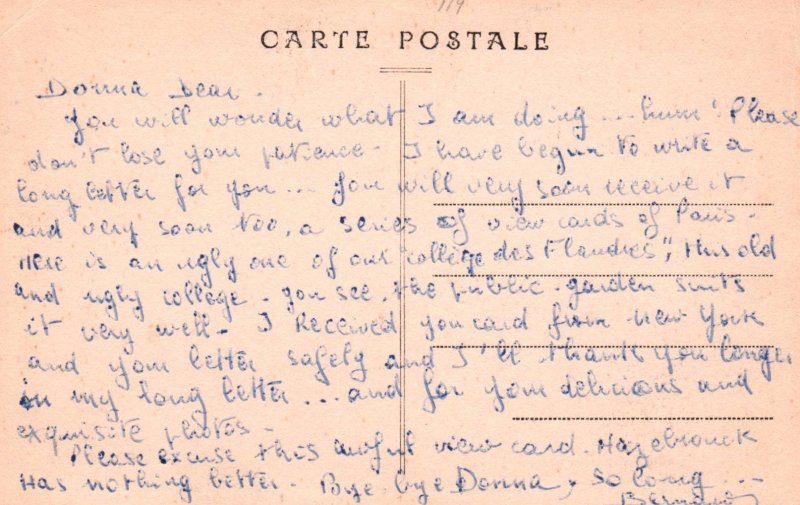 119
CARTE POSTALE
Donna Dear.
You will wonder what I am doing ... hum! Please
don't lose your patience - I have begun to write a
long letter for you ... You will very soon receive it
and very soon too, a series of view cards of Paris -
Here is an ugly one of our "collège des Flandres", this old
and ugly college - you see, the public-garden suits
it very well - I received you card from New York
and your letter safely and I'll thank you longer
in my long letter ... and for your delicious and
exquisite photos -
Please excuse this awful view card. Hazebrouck
Has nothing better. Bye bye Donna, so long ...